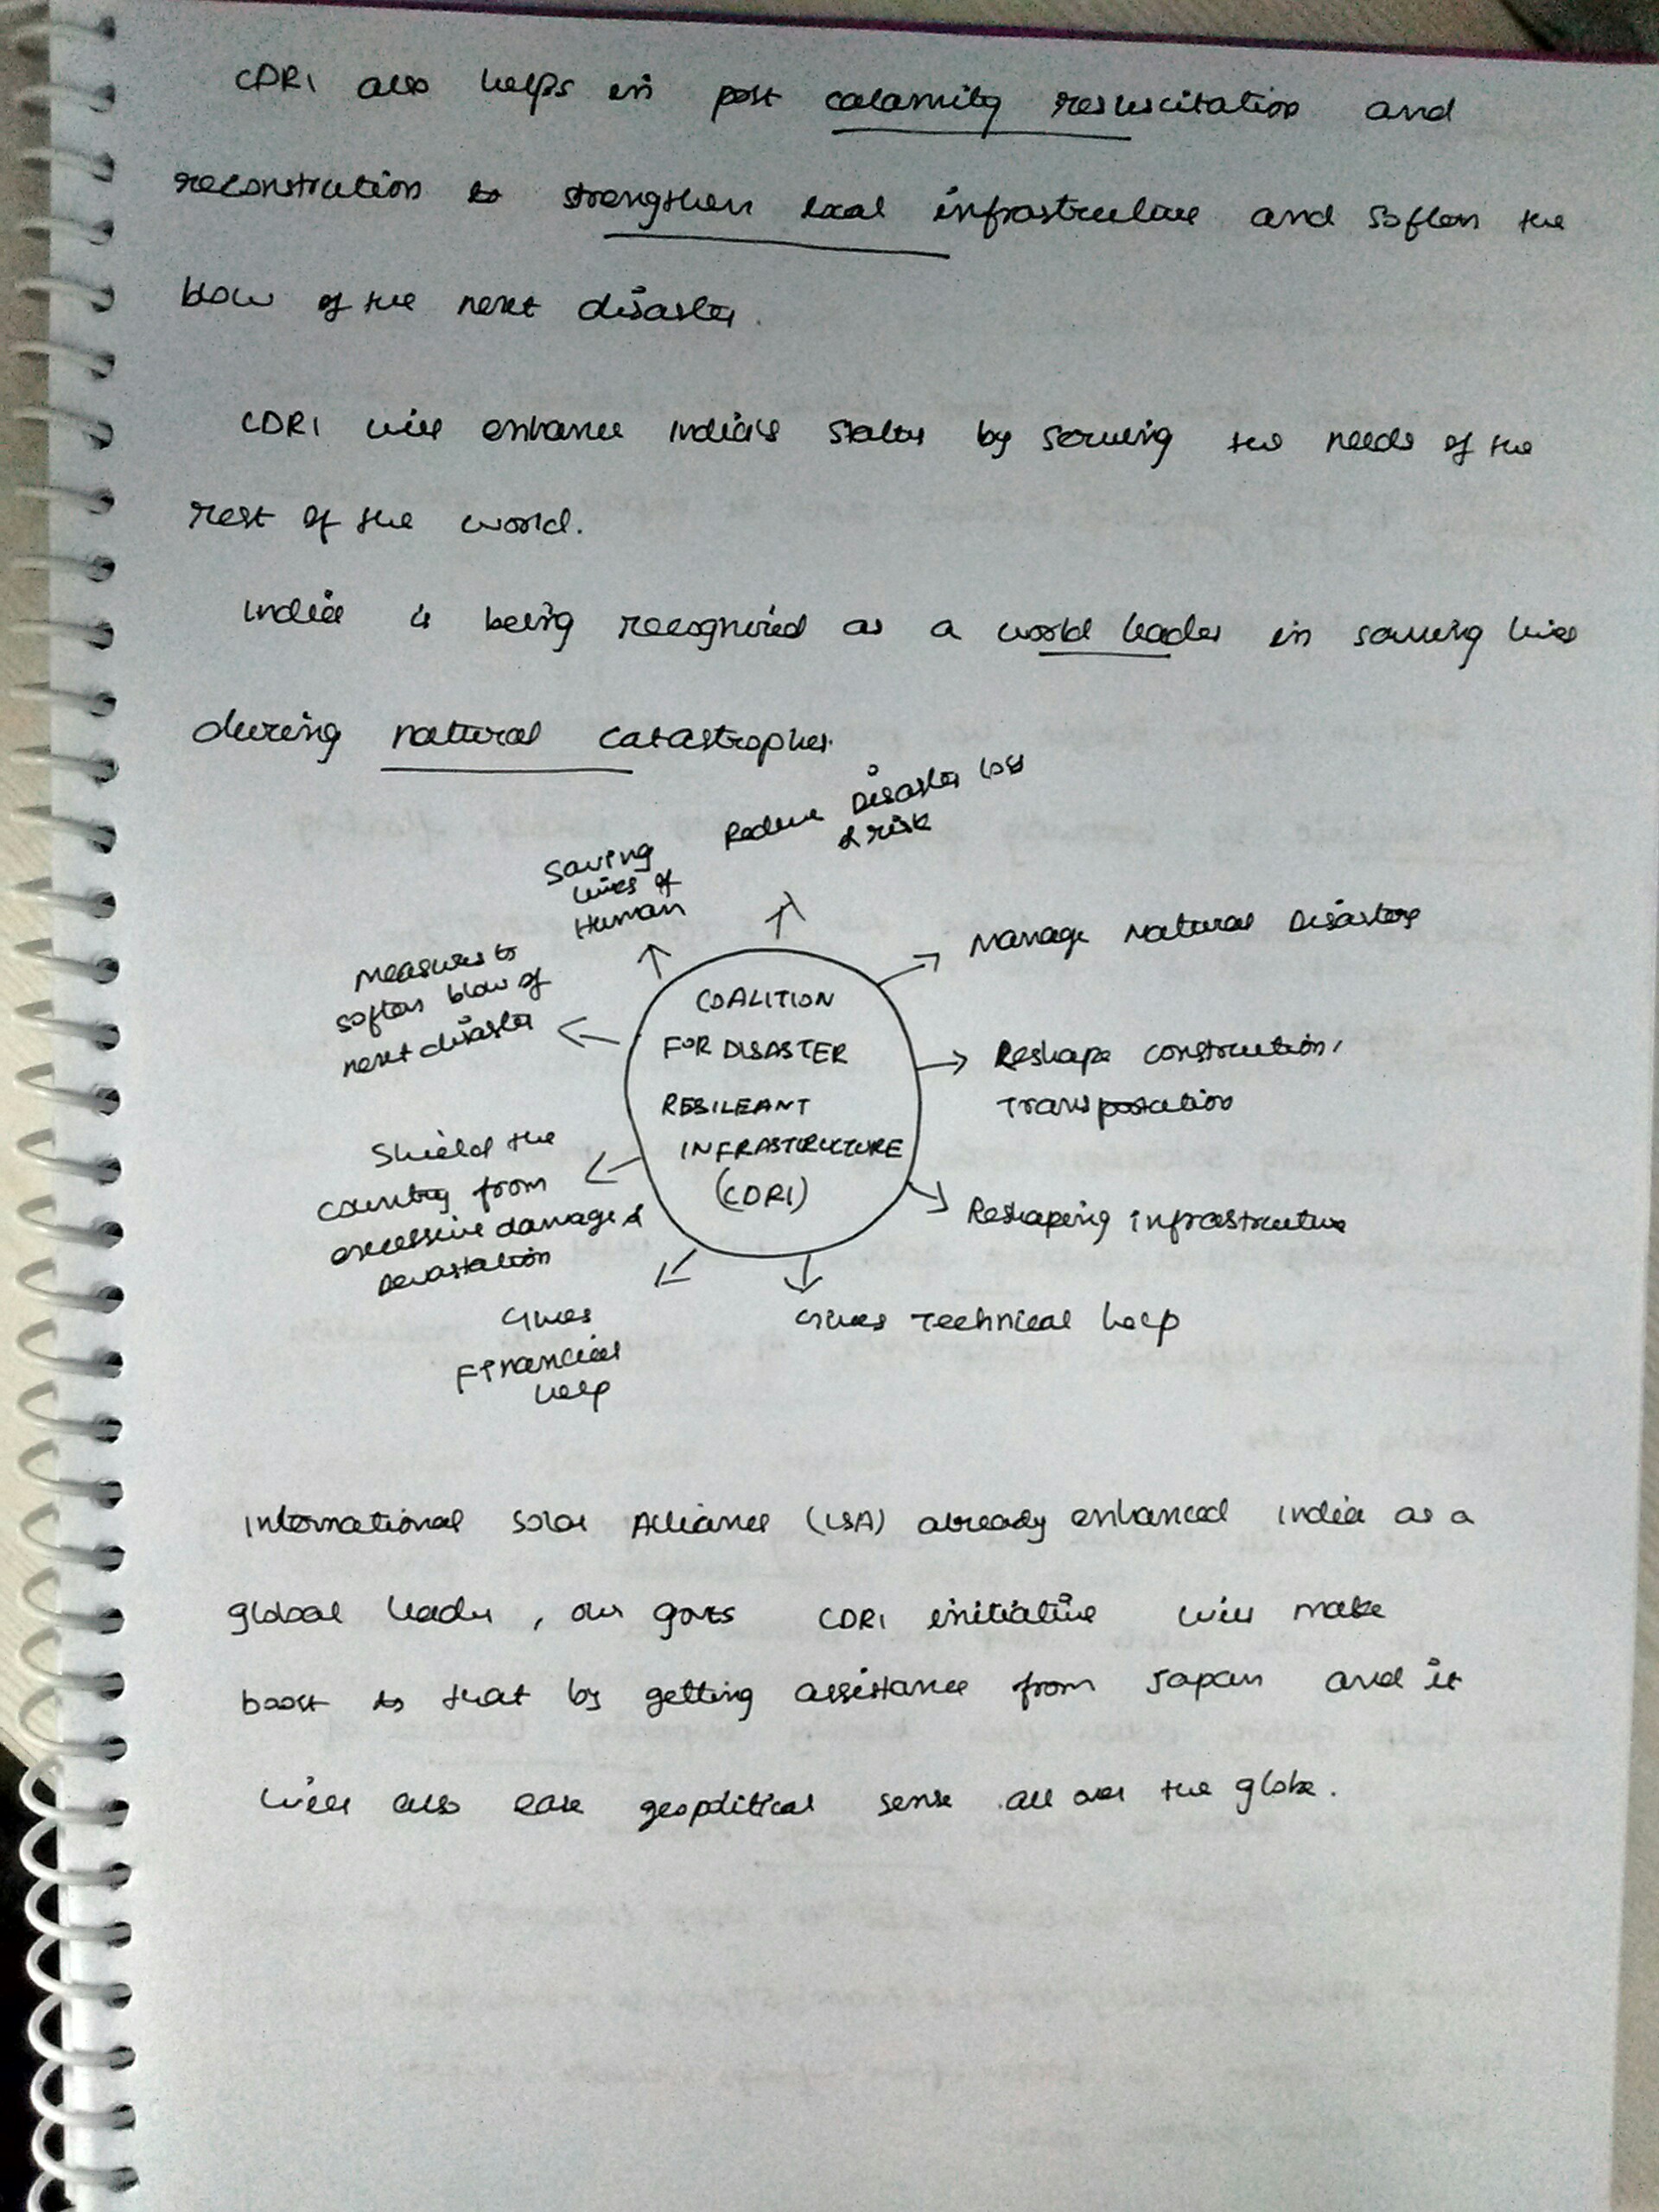 CDRI also helps in post calamity resuscitation and
reconstruction to strengthen local infrastructure and soften the
blow of the next disaster.
CDRI will enhance India's status by serving the needs of the
rest of the world.
India is being recognized as a world leader in saving lives
during natural catastrophes.
Reduce Disaster loss
& risk
Saving
lives of
Human
Manage Natural Disasters
Measures to
soften blow of
next disaster
COALITION
FOR DISASTER
RESILEANT
INFRASTRUCTURE
(CDRI)
Reshape construction,
Transportation
Shield the
country from
excessive damage &
Devastation
Reshaping infrastructure
Gives
Financial
help
Gives Technical help
International Solar Alliance (ISA) already enhanced India as a
global leader, our govts CDRI initiative will make
boost to that by getting assistance from Japan and it
will also ease geopolitical sense all over the globe.